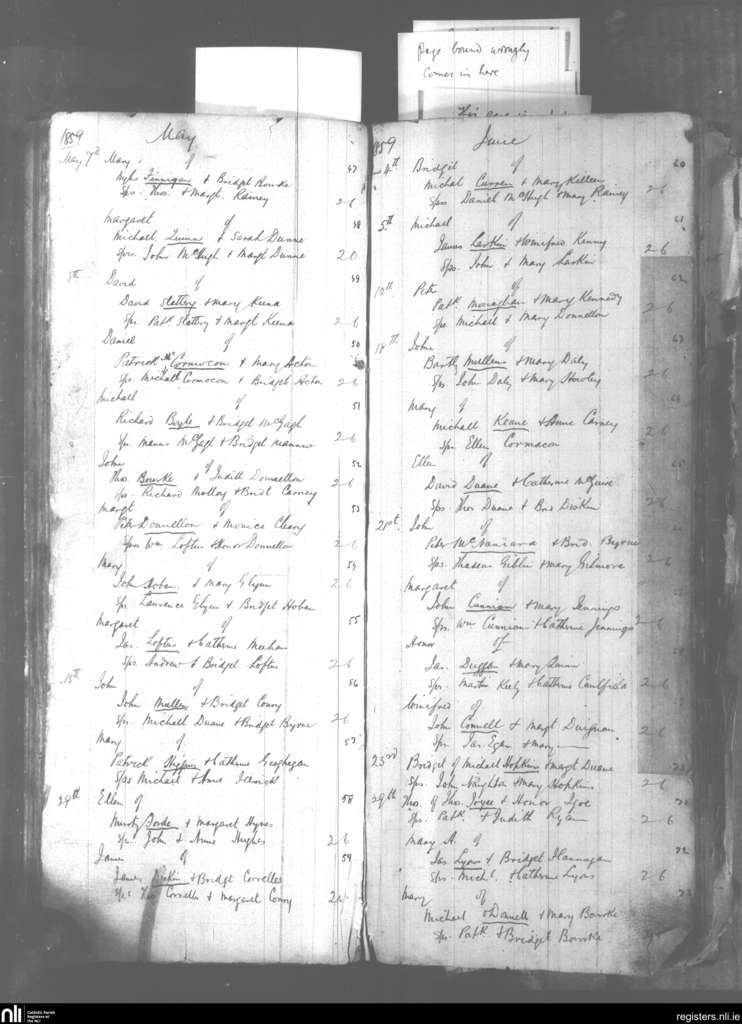 Page bound wrongly
comes in here
1859 May
May 7th Mary of 47
Myles Finnigan & Bridget Rourke
Sps. Thos. & Margt. Rainey 2-6
Margaret of 48
Michael Quinn & Sarah Dunne
Sprs. John McHugh & Margt Dunne 2 0
David of 49
David Slattery & Mary Keena
Spr. Patk Slattery & Margt Keena 2-6
Daniel of 50
Patrick McCormocon & Mary Acton
Sps. Michall Cormocon & Bridget Acton 2 6
Michall of 51
Richard Boyle & Bridget McGagh
Spr. McGagh & Bridget 2-6
John of 52
Thos. Bourke & Judith Donnellon 2-6
Sps. Richard Molloy & Bridt Carney
Margt of 53
Peter Donnellon & Monica Cleary
Sprs Wm Loftus & Honor Donnellon 2-6
Mary of 54
John Hoban & Mary Glynn 2 6
Spr. Laurence Glynn & Bridget Hoban
Margaret of 55
Jas. Loftus & Catherine Meehan
Sps. Andrew & Bridget Loftus 2-6
15th John of 56
John Mullen & Bridget Conry
Sps. Michall Duane & Bridget Byrne 2-6
Mary of 57
Patrick & Catherine Geoghegan
Sps Michael & Anne
29th Ellen of 58
& Margaret Hynes
Spr. John & Anne Hughes 2 6
James of 59
James & Bridget Corceller
Sps Thos Corceller & Margaret Conry
1859 June
4th Bridgit of 60
Michal Curren & Mary Killeen
Sprs Daniel McHugh & Mary Rainey 2-6
5th Michael of 61
James Larkin & Winifred Kenny 2-6
Sps. John & Mary Larkin
12th Peter of 62
Patk. Monaghan & Mary Kennedy
Sps. Michael & Mary Donnellon 2-6
18th John of 63
Bartly Mullens & Mary Daly
Sprs John Daly & Mary Howley 2-6
Mary of 64
Michall Keane & Anne Carney
Spr Ellen Cormacon 2-6
Ellen of 65
David Duane & Catherine McGuire
Sps Thos Duane & Brid Diskin 2-6
21st John of
Peter McNamara & Brid. Byrne
Sps. Thadeus Giblin & Mary Gilmore 2-6
Margaret of
John Cunnian & Mary Jennings
Sprs. Wm Cunnian & Catherine Jennings 2-6
Honor of
Jas. Duggan & Mary Quinn
Spr. Martin Keely & Catherine Caulfield 2-6
Winifred of
John Connell & Margt Duignan 2-6
Spr. Jas. Egan & Mary —
23rd Bridget of Michael Hopkins & Margt Duane
Sps. John Naughton & Mary Hopkins 2 6
29th Thos. of Thos. Joyce & Honor Igoe
Sps. Patk. & Judith Ryan 2-6
Mary A. of 72
Jas Lyons & Bridget Flannagan
Sps. Michl. & Catherine Lyons 2 6
Mary of 73
Michael O'Donnell & Mary Bourke
Sps. Patk & Bridget Bourke
nli
Catholic Parish
Registers at
the NLI
registers.nli.ie